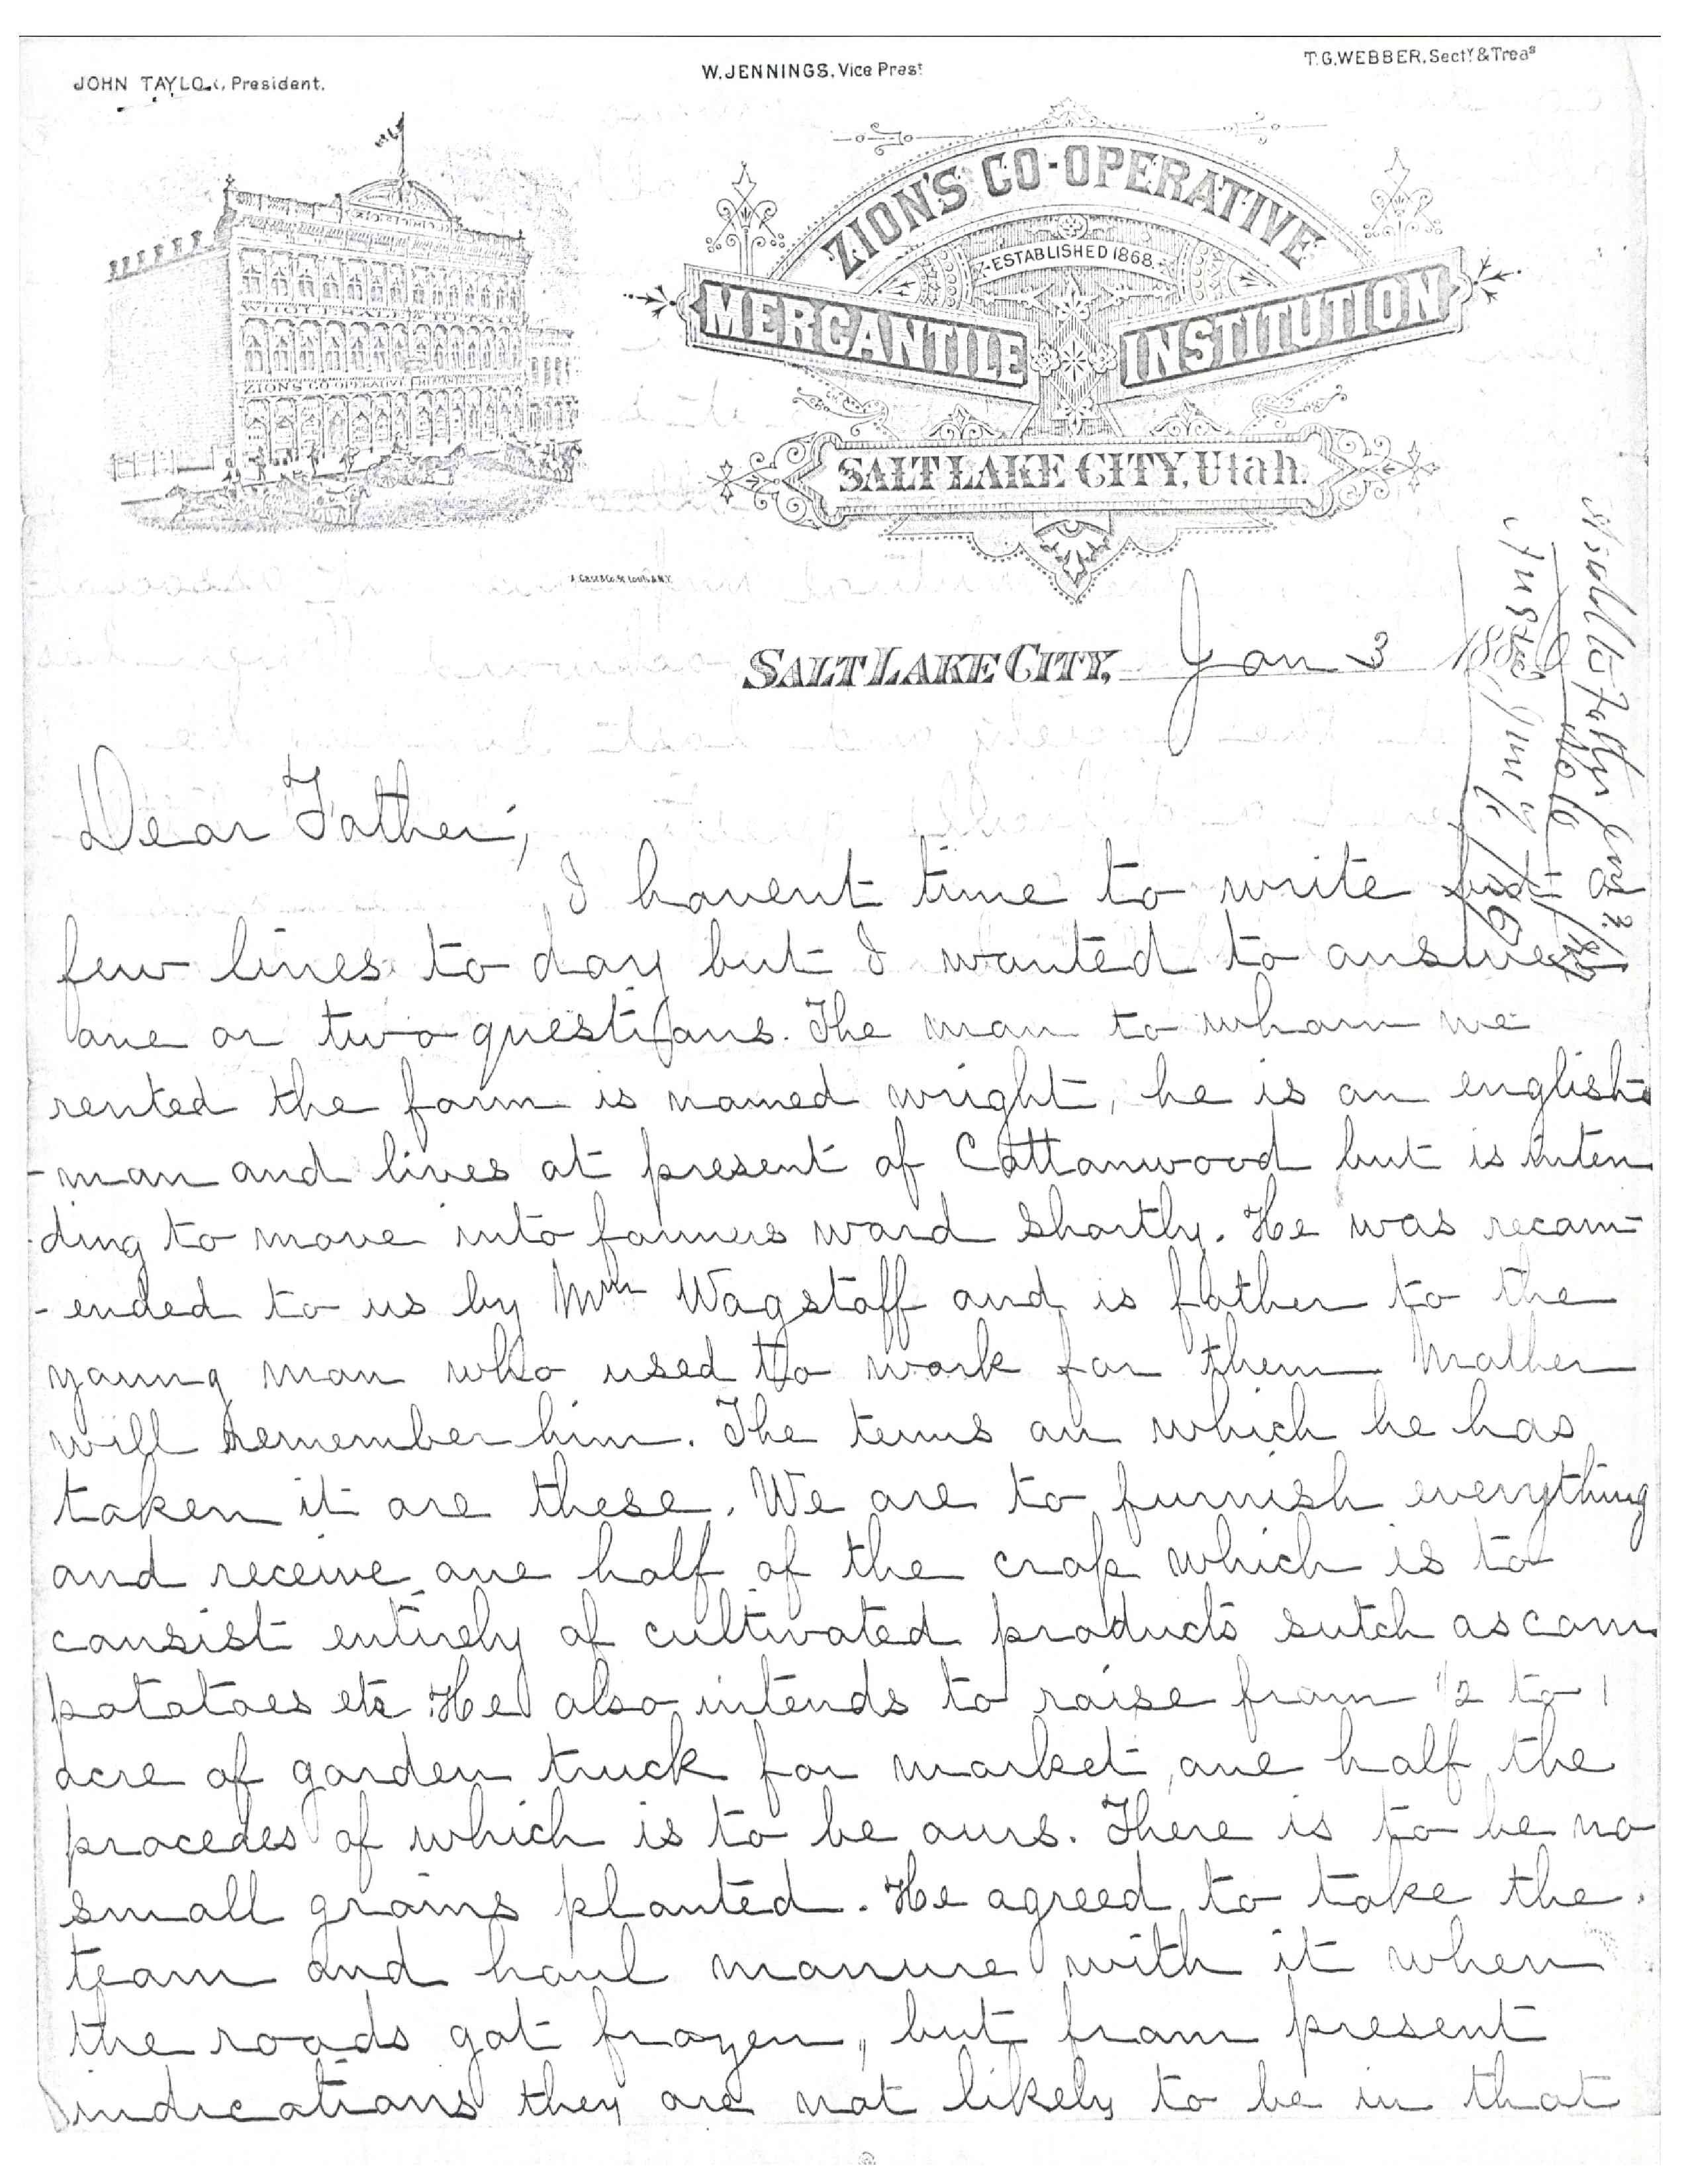 JOHN TAYLOR, President.
W. JENNINGS, Vice Prest
T. G. WEBBER, Sect.Y & Treas
ZION'S CO-OPERATIVE
ESTABLISHED 1868.
MERCANTILE INSTITUTION
SALT LAKE CITY, Utah.
ZION'S CO-OPERATIVE
A. Gast & Co. St. Louis & N.Y.
SALT LAKE CITY, Jan 3 1886
Dear Father;
I havent time to write but
few lines to day but I wanted to answer
one or two questions. The man to whom we
rented the farm is named wright, he is an english
-man and lives at present of Cottonwood but is inten
-ding to move into farmers ward shortly. He was recom-
-ended to us by Mrn Wagstaff and is father to the
young man who used to work for them Mother
will remember him. The terms on which he has
taken it are these. We are to furnish everything
and receive one half of the crop which is to
consist entirely of cultivated products sutch as corn
potatoes etc He also intends to raise from 1/2 to 1
acre of garden truck for market, one half the
procedes of which is to be ours. There is to be no
small grains planted. He agreed to take the
team and haul manure with it when
the roads got frozen, but from present
indications they are not likely to be in that